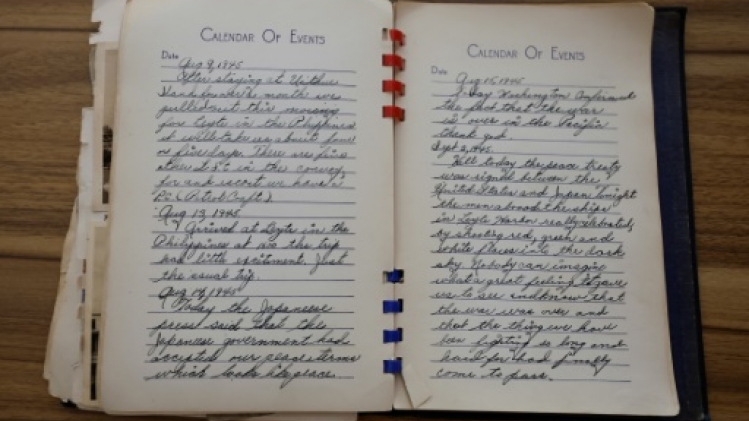 CALENDAR OF EVENTS
Date
Aug 9, 1945
After staying at Uithie
Island for a month we
pulled out this morning
for Leyte in the Philippines
it will take us about four
or five days. There are five
other LST in the convoy,
for and escort we have a
PC (Patrol Craft)
Aug 13, 1945
Arrived at Leyte in the
Philippines at noo the trip
had little excitment. Just
the usual trip.
Aug 14, 1945
Today the Japanese
press said that the
Japanese government had
accepted our peace terms
which looks like peace.
CALENDAR OF EVENTS
Date
Aug 15, 1945
Today Washington confirmed
the fact that the war
is over in the Pacific
thank god
Sept 2, 1945
Well today the peace treaty
was signed between the
United States and Japan. Tonight
the men aboard the ships
in Leyte Harbor really celebrated,
by shooting red, green and
white flares into the dark
sky. Nobody can imagine
what a great feeling it gave
us to see and know that
the war was over and
that the thing we have
been fighting so long and
hard for had finally
come to pass.